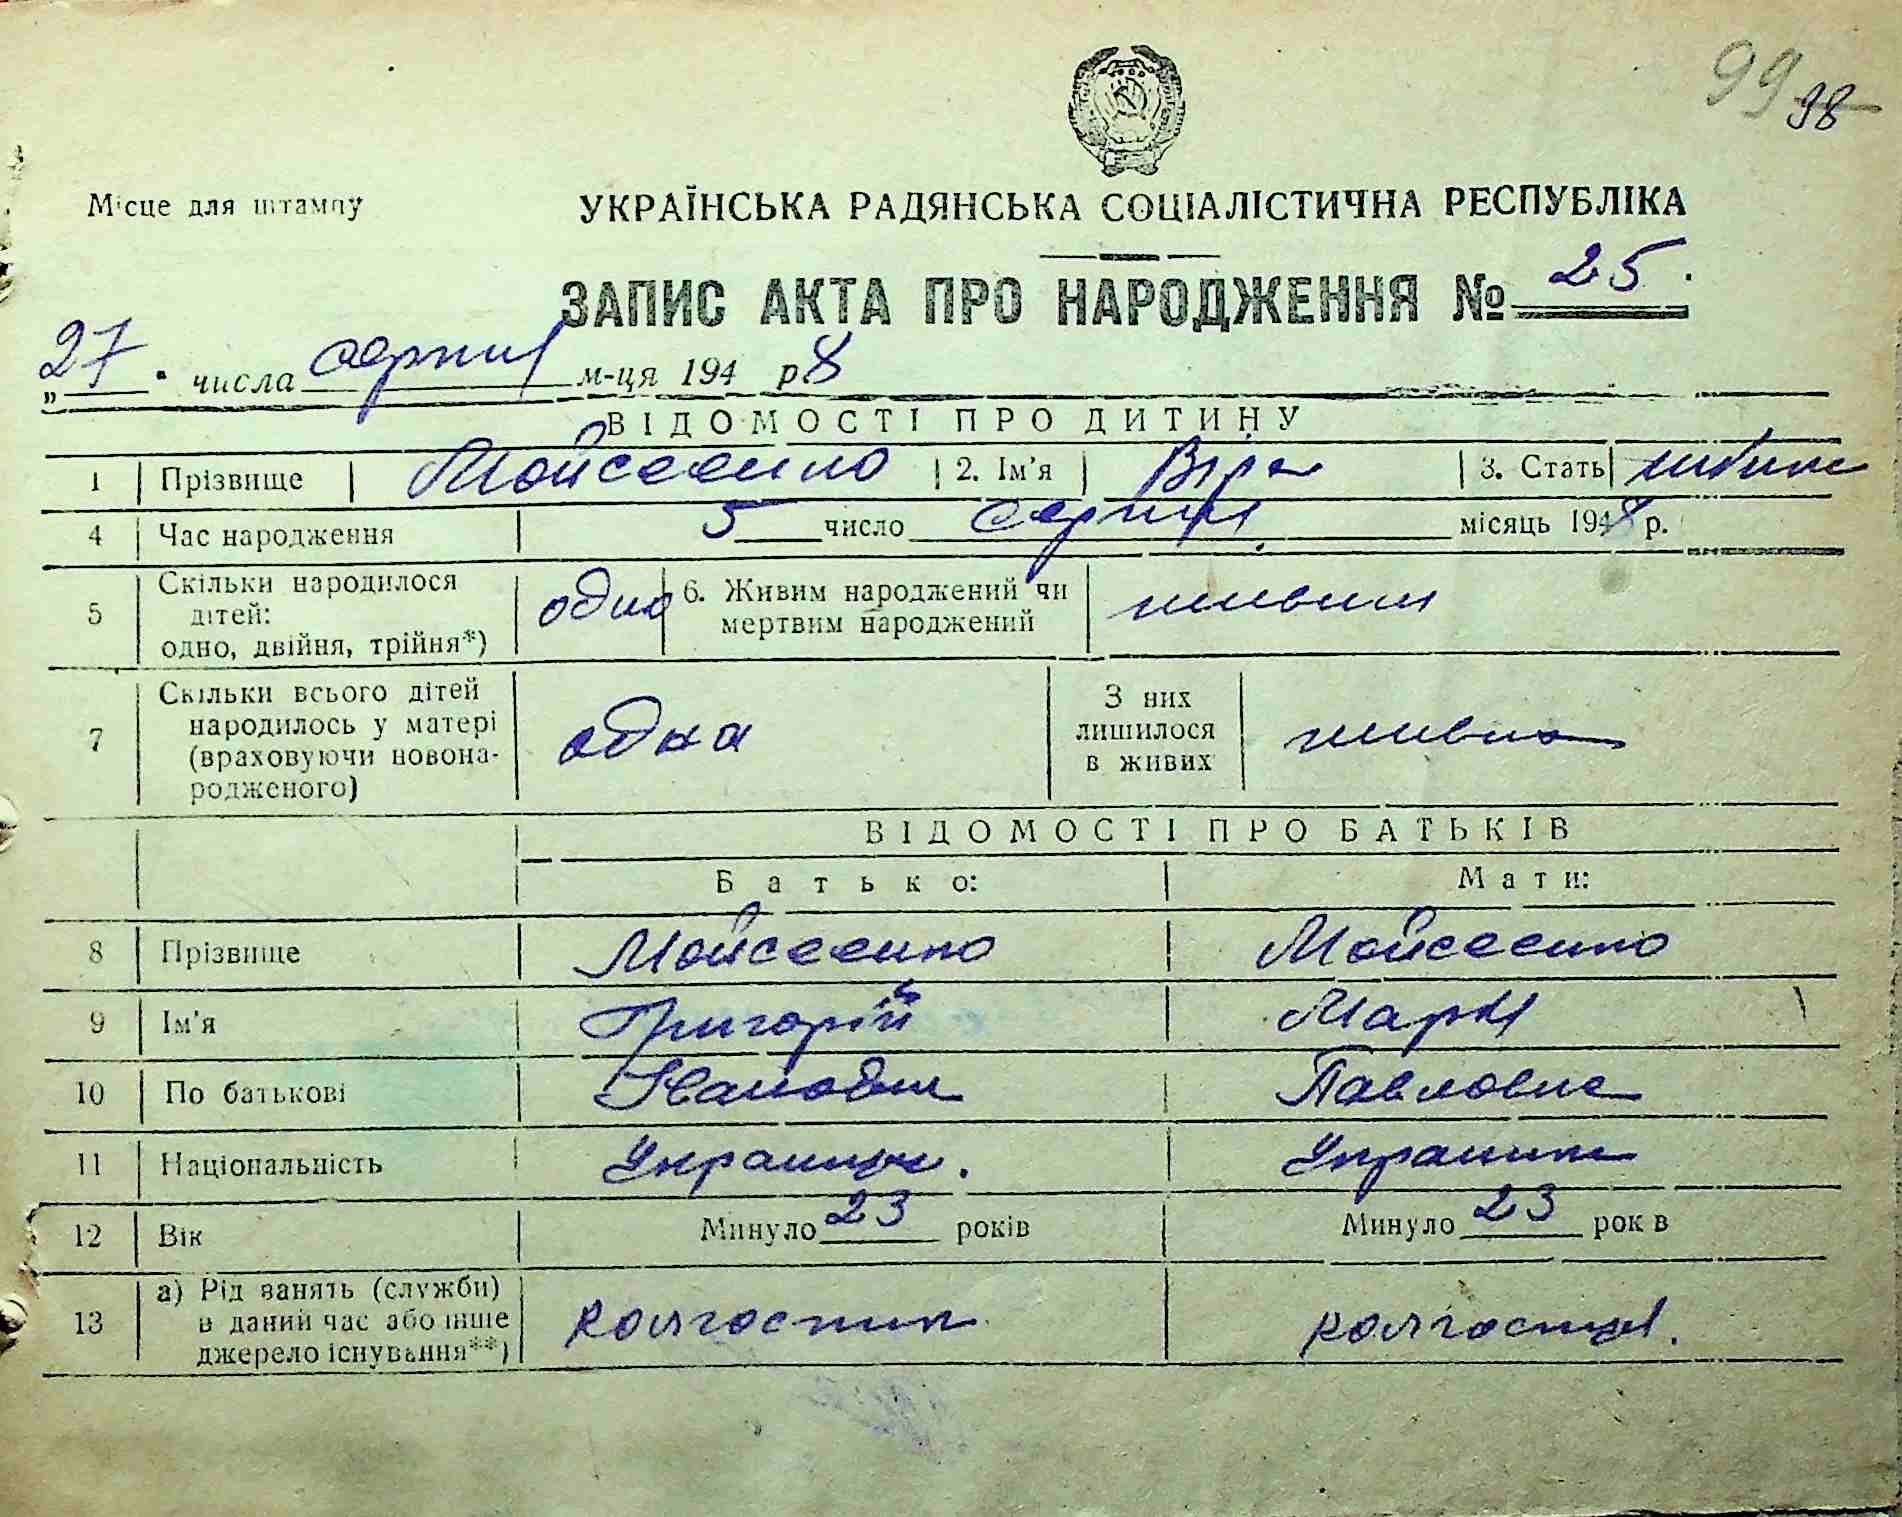 99 98
Місце для штампу
УКРАЇНСЬКА РАДЯНСЬКА СОЦІАЛІСТИЧНА РЕСПУБЛІКА
ЗАПИС АКТА ПРО НАРОДЖЕННЯ № 25.
„27" числа серпня м-ця 194 р. 8
ВІДОМОСТІ ПРО ДИТИНУ
1 Прізвище Мойсеєнко 2. Ім'я Віра 3. Стать
4 Час народження 5 число серпня місяць 1948 р.
5 Скільки народилося дітей: одно, двійня, трійня*) одно 6. Живим народжений чи мертвим народжений живим
7 Скільки всього дітей народилось у матері (враховуючи новонародженого) одна З них лишилося в живих
ВІДОМОСТІ ПРО БАТЬКІВ
Батько: Мати:
8 Прізвище Мойсеєнко Мойсеєнко
9 Ім'я Григорій Марія
10 По батькові Іванович Павловна
11 Національність Українец. Українка
12 Вік Минуло 23 років Минуло 23 рок в
13 а) Рід занять (служби) в даний час або інше джерело існування**) колгоспник колгоспниця.